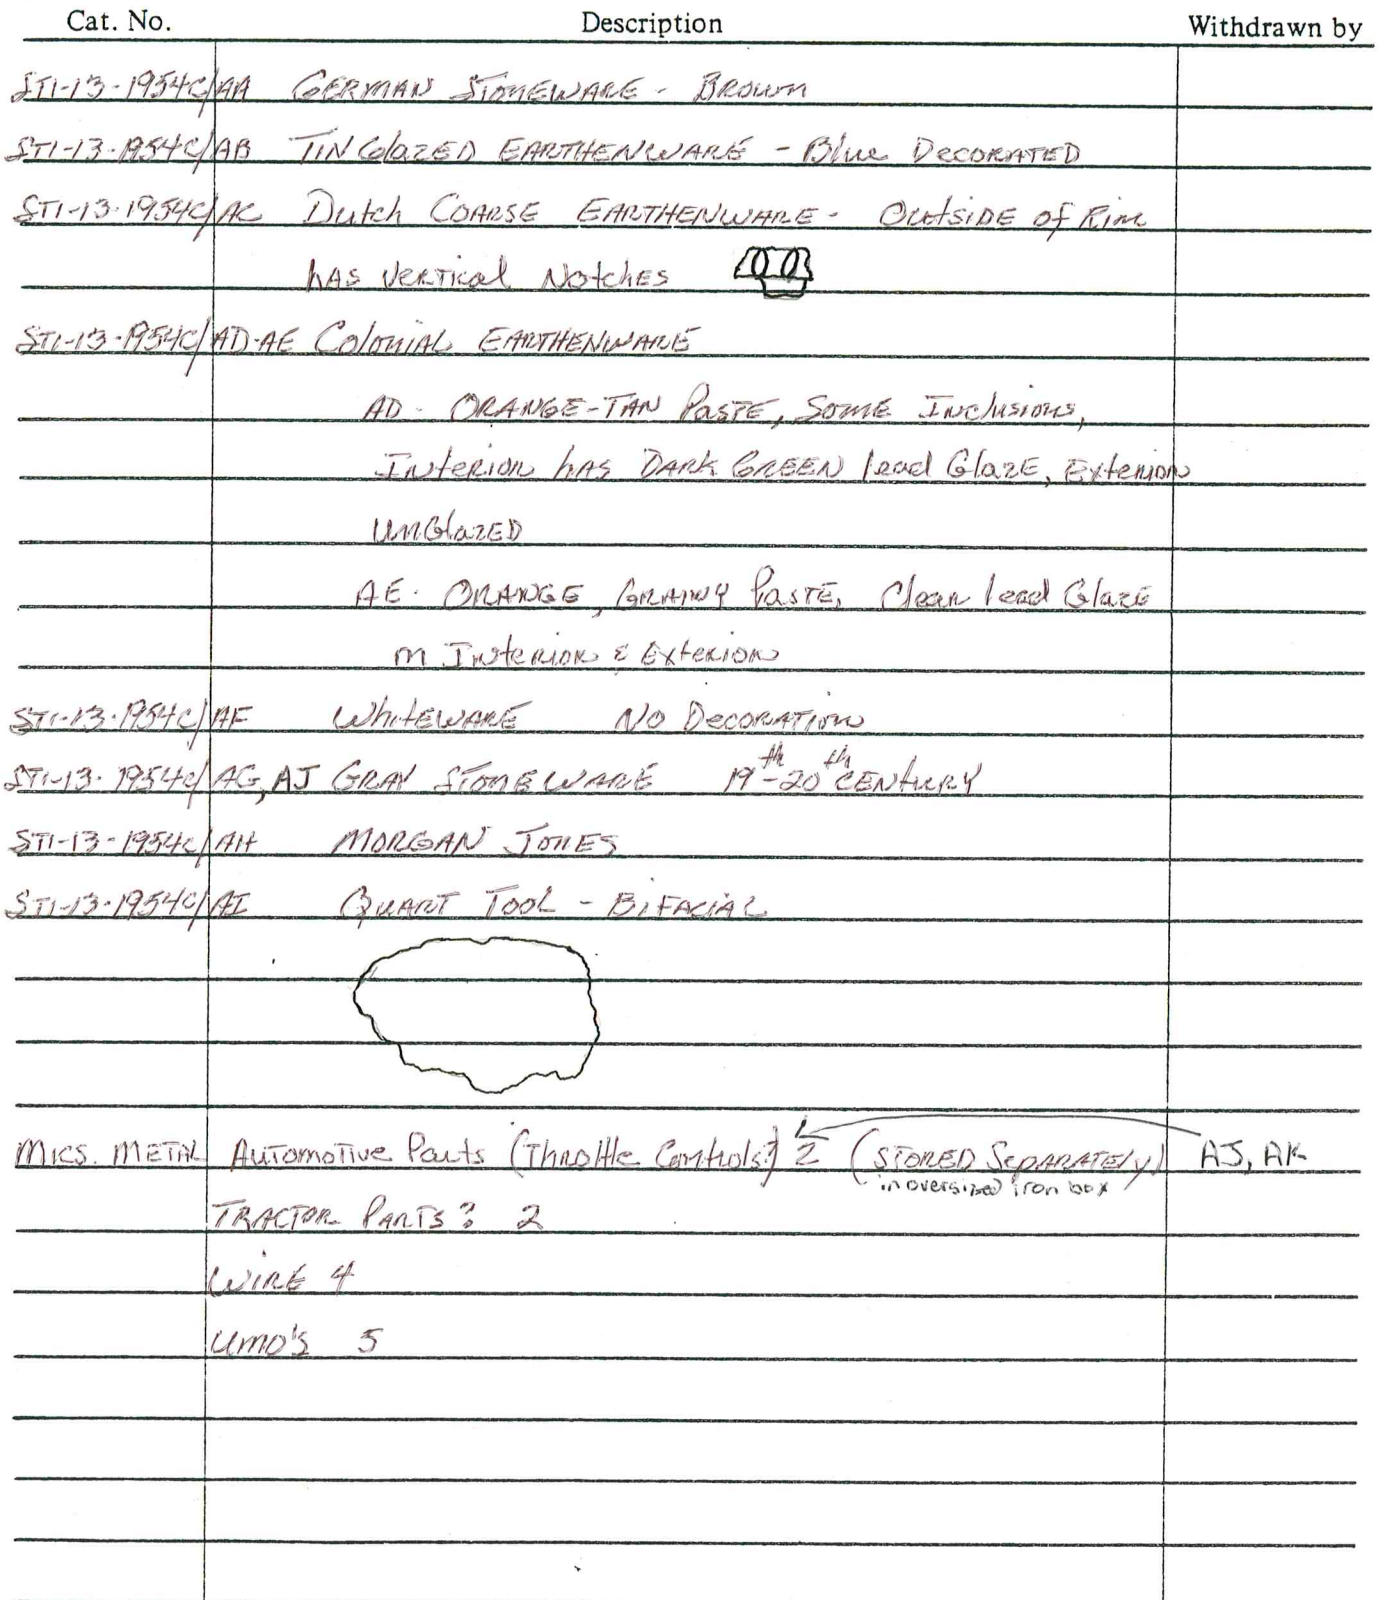 Cat. No. Description Withdrawn by
ST1-13-1954C/AA German Stoneware - Brown
ST1-13-1954C/AB Tin Glazed Earthenware - Blue Decorated
ST1-13-1954C/AC Dutch Coarse Earthenware - Outside of Rim
has Vertical Notches
ST1-13-1954C/AD-AE Colonial Earthenware
AD - Orange-Tan Paste, Some Inclusions,
Interior has Dark Green lead Glaze, Exterior
UnGlazed
AE - Orange, Grainy Paste, Clear lead Glaze
on Interior & Exterior
ST1-13-1954C/AF Whiteware No Decoration
ST1-13-1954C/AG, AJ Gray Stoneware 19th-20th Century
ST1-13-1954C/AH Morgan Jones
ST1-13-1954C/AI Quart Tool - Bifacial
Mics. Metal Automotive Parts (Throttle Controls?) 2 (Stored Separately) AJ, AK
in oversized iron box
Tractor Parts? 2
Wire 4
UMO's 5